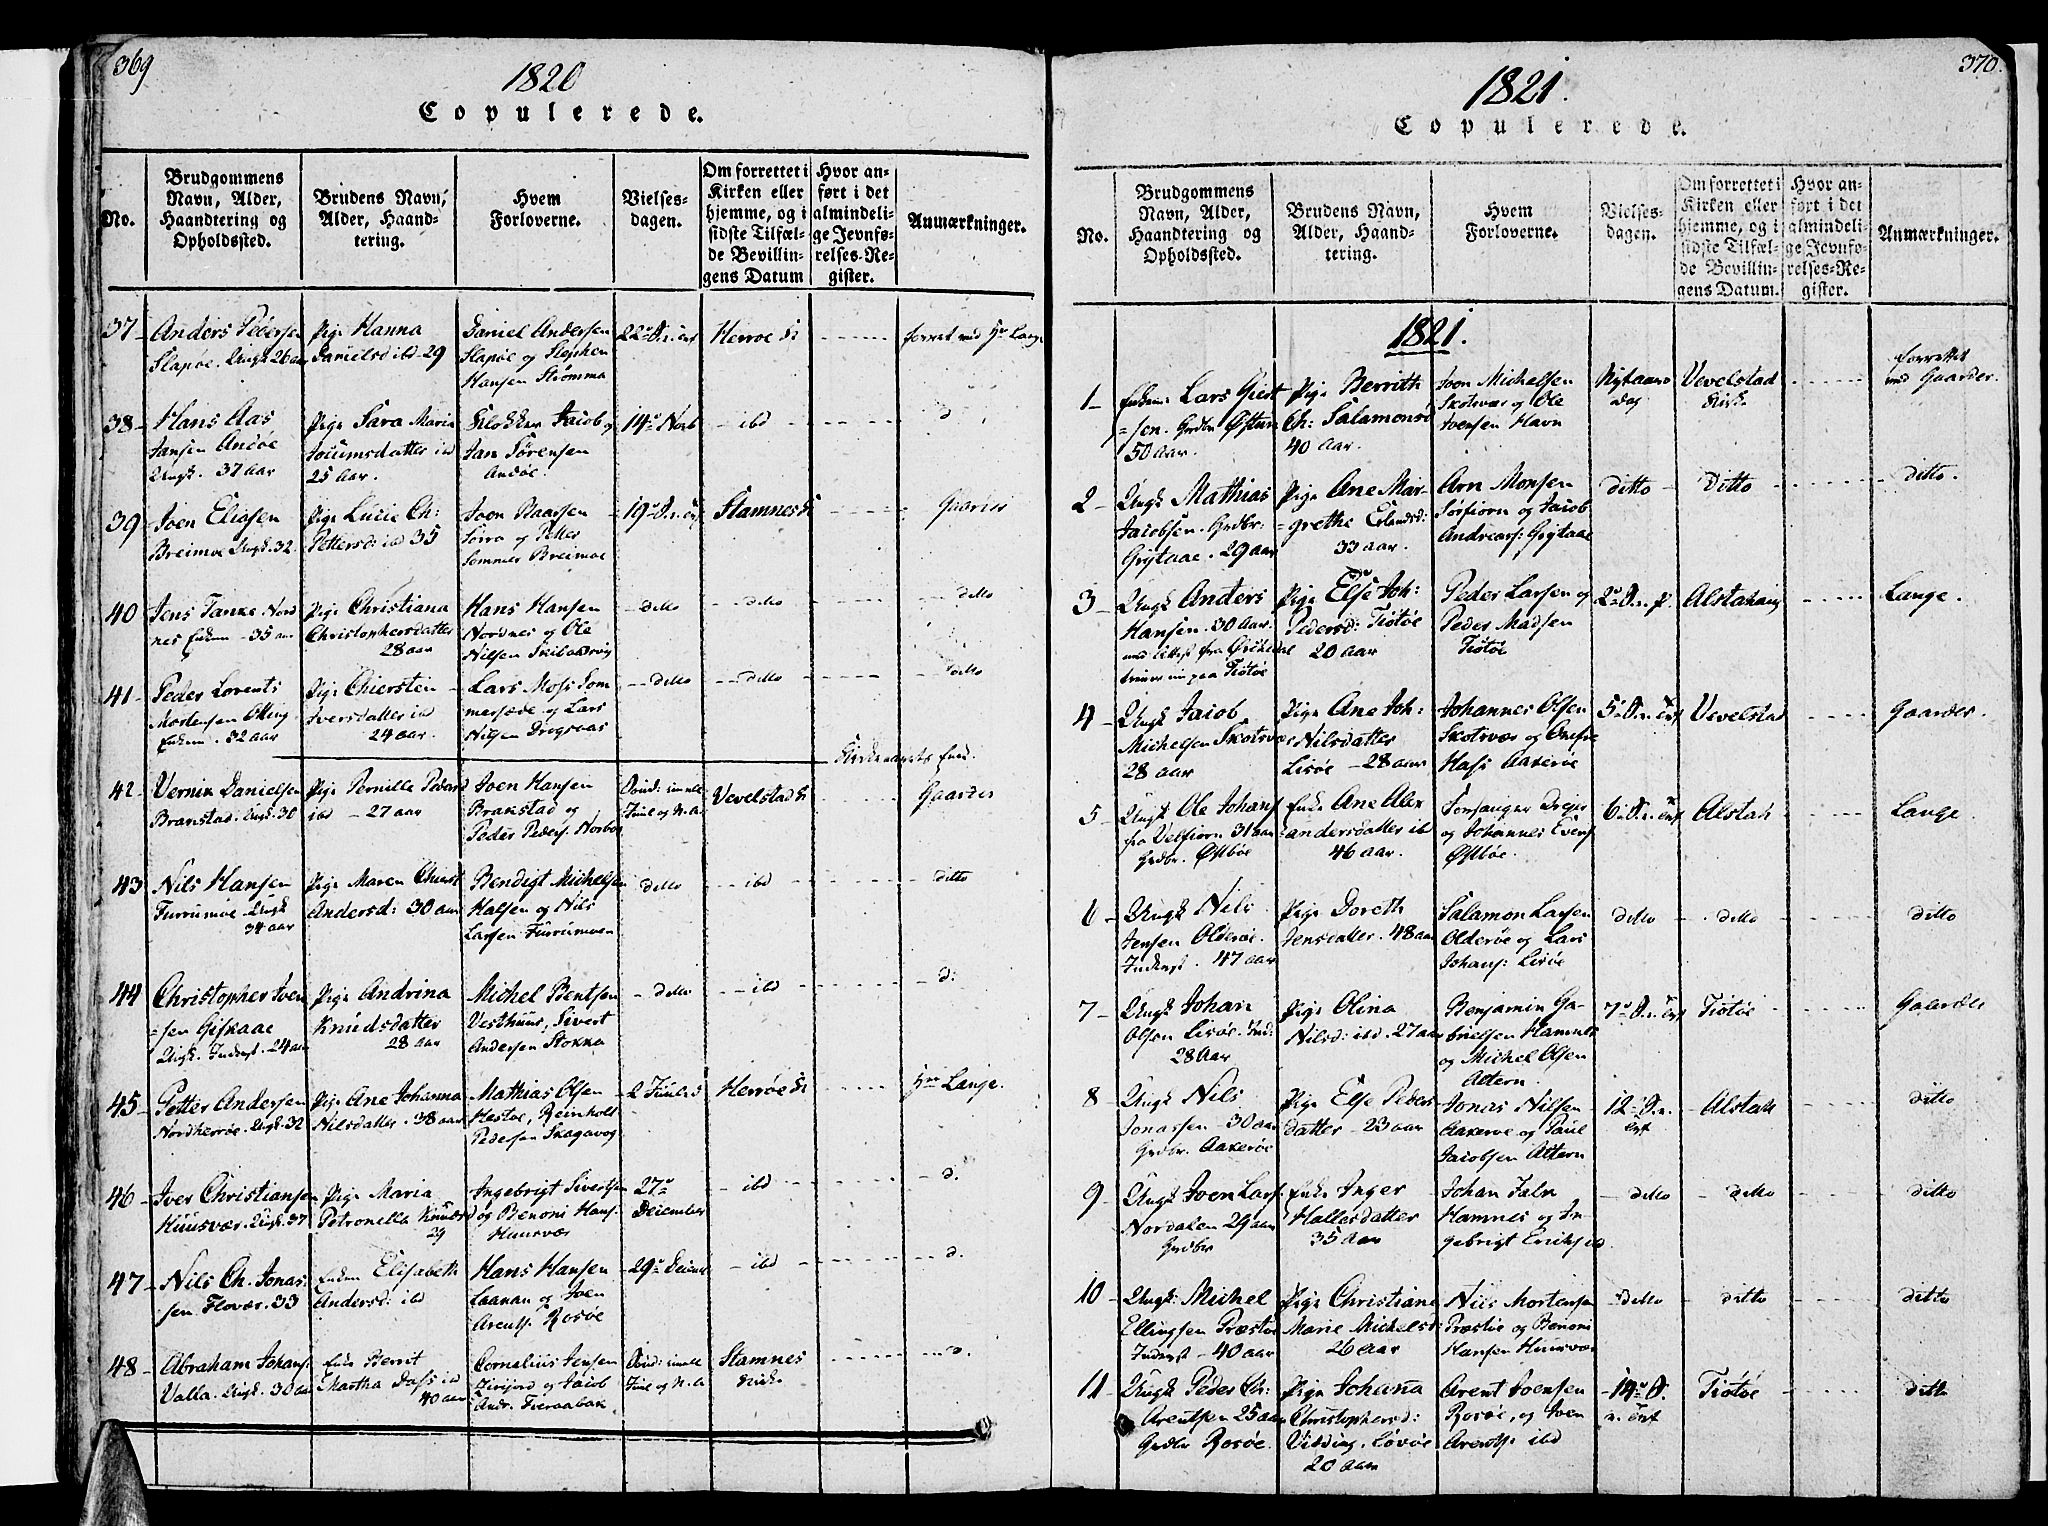 369
1820
Copulerede.
No.
Brudgommens
Navn, Alder,
Haandtering og
Opholdssted.
Brudens Navn,
Alder, Haand-
tering.
Hvem
Forloverne.
Vielses-
dagen.
Om forrettet i
Kirken eller
hjemme, og i
sidste Tilfæl-
de Bevillin-
gens Datum
Hvor an-
ført i det
almindeli-
ge Jevnfø-
relses-Re-
gister.
Anmærkninger.
37 Anders Pedersen
Slapøe. Ungk 26 aar
Pige Hanna
Danielsd ibd 29
Daniel Andersen
Slapøe og Stephen
Hansen Strømma
Herrøe K
38 Hans Aas
Jansen Andøe
Ungk. 37 aar
Pige Sara Maria
25 Aar.
Klokker Jacob og
Jan Sørensen
Andøe.
14de Novb
ibd
d
39 Iven Eliasen
Breimoe Ungk. 32
Pige Lucie Ch:
Pettersd: ibd 35
Sørra og Petter
Sommer Breimoe
Stamnes K
Gaarder
40 Jens Tanke Nord
nes Enkem 35 aar
Pige Christiana
Christophersdatter
28 aar
Hans Hansen
Nordnes og Ole
Nilsen
ditto
ditto
ditto
41 Peder Lorents
Mortensen
Enkem. 32 aar
Pige Chiersten
Iversdatter ibd
24 aar.
Lars Moss Som
og Lars
Nilsen
ditto
ditto
ditto
Kirkeaarets Ende.
42 Vernik Danielsen
Branstad. Ungk. 30
Pige Pernille Pedersd
ibd 27 aar
Iven Hansen
Brakstad og
Peder Peders. Norbos
Vevelstad K
Gaarder
43 Nils Hansen
Furrumoe Ungk
34 aar
Pige Maren Chirst
Andersd: 30 aar
Bendigt Michelsen
Halsen og Nils
Larsen Furrumoen
ditto
ibd
ditto
44 Christopher Iven
=sen Giskaae
Ungk. Inderst. 24 aar
Pige Andrina
Knudsdatter
28 aar
Michel Bentsen
Vesthuus, Sivert
Andersen Stokka
ditto
ibd
d:
45 Petter Andersen
Nordherrøe. Ungk. 32
Pige Ane Johanna
Nilsdatter. 38 aar
Mathias Olsen
Hestøe, Reinholt
Pedersen Skagavog
2 Juuled
Herrøe K
Hr Lange.
46 Iver Christiansen
Huusvær. Ungk. 37
Pige Maria
Petronella Knudsd
29
Ingebrigt Sivertsen
og Benoni Hans.
Huusvær
27de
December
ibd
d.
47 Nils Ch. Jonas
sen Flovær. 33
Elisabeth
Andersd: ibd
Hans Hansen
Laanan og Iven
Arents. Rosøe
29de
ibd
d.
48 Abraham Johans.
Valla. Ungk. 30 aar
Enke Berrit
Martha Dass ibd
40 aar
Cornelius Jensen
og Jacob
Andr.
Stamnes
Kirke
d.
370.
1821.
Copulerede.
No.
Brudgommens
Navn, Alder,
Haandtering og
Opholdssted.
Brudens Navn,
Alder, Haand-
tering.
Hvem
Forloverne.
Vielses-
dagen.
Om forrettet i
Kirken eller
hjemme, og i
sidste Tilfæl-
de Bevillin-
gens Datum.
Hvor an-
ført i det
almindeli-
ge Jevnfø-
relses-Re-
gister.
Anmærkninger.
1821.
1 Enkem: Lars Giert
=sen. Grdbr
50 aar.
Pige Berrith
Ch: Salamonsd
40 aar.
Ivon Michelsen
Skotsvær og Ole
Ivensen Havn
Nytaars
Dag
Vevelstad
Kirk.
forrettet
ved Gaarder.
2 Ungk Mathias
Jacobsen. Grdbr:
Grytaae. 29 aar
Pige Ane Mar-
=grethe Erlandsd:
33 aar.
Arn Monsen
Sørfiorn og Jacob
Andreas: Grytaae
ditto
ditto
ditto.
3 Ungk Anders
Hansen. 30 aar.
Tiøtøe
Pige Else Joh:
Pedersd: Tiøtøe
20 aar
Peder Larsen og
Peder Madsen
Tiøtøe
Alstahaug
Lange.
4 Ungk Jacob
Michelsen Skotsvær
28 aar
Pige Ane Joh:
Nilsdatter
Lisøe 28 aar
Johannes Olsen
Skotsvær og
Aakerøe
Vevelstad
Gaarder.
5 Ungk Ole Johans
fra Velfiorn 31 aar
Grdbr. Østbøe
Enke Ane Alex
=andersdatter ibd
46 aar.
og Johannes Evens
Østbøe.
Alstah
Lange.
6 Ungk Nils
Jensen Olderøe.
Inderst. 47 aar
Pige Doreth
Jensdatter. 48 aar
Salamon Larsen
Olderøe og Lars
Johans: Lisøe
ditto
ditto
ditto
7 Ungk Johan
Olsen Lisøe. Ind:
28 Aar
Pige Olina
Nilsd: ibd. 27 aar
Benjamin Ga-
brielsen Hamnes
og Michel Olsen
Altern
Tiøtøe
Gaarder
8 Ungk Nils
Jonassen 30 aar
Grdbr. Aakerøe
Pige Else Peders
datter 23 aar
Jonas Nilsen
Aakerøe og Paul
Jacobsen Altern
Alstah
ditto
9 Ungk Iven Lars.
Nordalen 29 aar
Grdbr
Enke Inger
Hallesdatter
35 Aar
Johan Falk
Hamnes og In
gebrigt Eriks ibd
ditto
ditto
ditto
10 Ungk: Michel
Ellingsen Præstøe
Inderst 40 aar
Pige Christiane
Marie Michelsd:
26 aar
Nils Mortensen
Præstøe og Benoni
Hansen Huusvær
ditto
ditto
ditto
11 Ungk Peder Ch:
Arentsen 25 aar
Grdbr Rosøe.
Pige Johana
Christophersd:
Vilding, Løvøe
20 aar
Arent Ivensen
Rosøe, og Iven
Arents. ibd
Tiøtøe
ditto